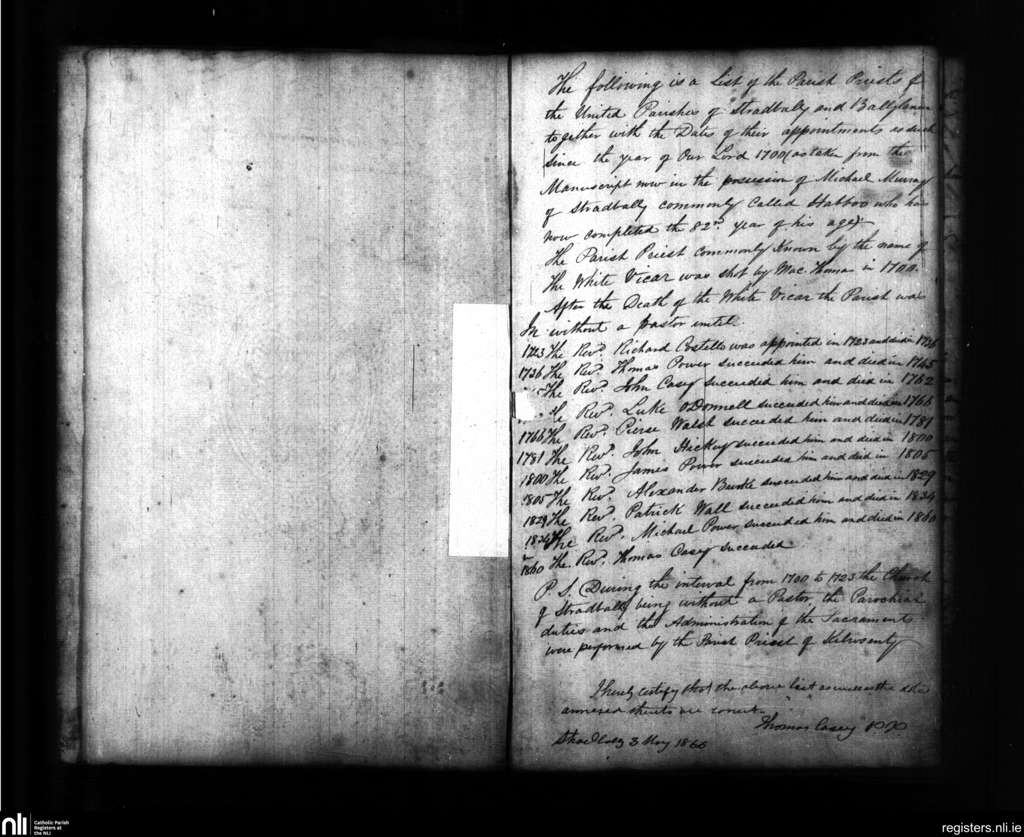 The following is a List of the Parish Priests of
the United Parishes of Stradbally and Ballylaneen
together with the Dates of their appointments as such
since the year of Our Lord 1700 (as taken from the
Manuscript now in the possession of Michael Murray
of Stradbally commonly Called Habboo who has
now completed the 82nd year of his age)
The Parish Priest commonly Known by the name of
The White Vicar was shot by Mac Thomas in 1700.
After the Death of the White Vicar the Parish was
In without a pastor until.
1723 The Revd. Richard Costello was appointed in 1723 and died in 1736
1736 The Revd. Thomas Power succeeded him and died in 1743
The Revd. John Casey succeeded him and died in 1762
Revd. Luke O'Donnell succeeded him and died in 1766
1766 The Revd. Pierse Walsh succeeded him and died in 1781
1781 The Revd. John Hickey succeeded him and died in 1800
1800 The Revd. James Power succeeded him and died in 1805
1805 The Revd. Alexander Burke succeeded him and died in 1829
1829 The Revd. Patrick Wall succeeded him and died in 1834
1834 The Revd. Michael Power succeeded him and died in 1860
1860 The Revd. Thomas Casey succeeded
P.S. (During the interval from 1700 to 1723 the Church
of Stradbally being without a Pastor the Parochial
duties and the Administration of the Sacraments
were performed by the Parish Priest of Kilrosenty
I hereby certify that the above list as well as the
annexed sheets are correct.
Thomas Casey PP
Stradbally 3 May 1866
nli
Catholic Parish
Registers at
the NLI
registers.nli.ie